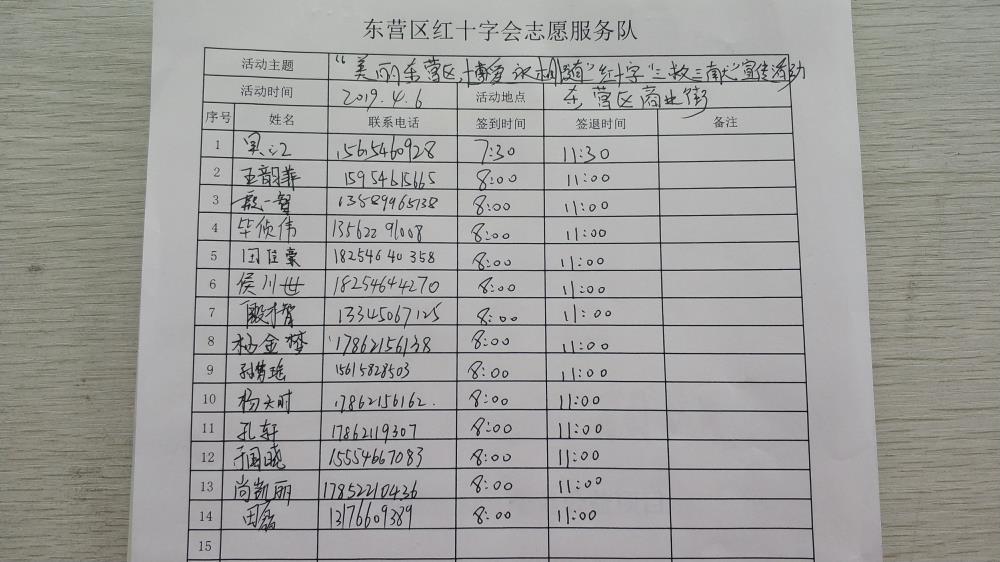 东营区红十字会志愿服务队
活动主题 "美丽东营区,博爱 相随"红十字"三救三献"宣传活动
活动时间 2019.4.6 活动地点 东营区商业街
序号 姓名 联系电话 签到时间 签退时间 备注
1 吴江 15615460928 7:30 11:30
2 王韵菲 15954615665 8:00 11:00
3 殷一智 13589965138 8:00 11:00
4 毕侦伟 8:00 11:00
5 田佳豪 18254640358 8:00 11:00
6 侯川世 18254644270 8:00 11:00
7 13345067125 8:00 11:00
8 杨金梦 17862156138 8:00 11:00
9 15615828503 8:00 11:00
10 杨天时 17862156162 8:00 11:00
11 孔轩 17862119307 8:00 11:00
12 于国晓 15554667083 8:00 11:00
13 尚凯丽 17852210436 8:00 11:00
14 田磊 13176609389 8:00 11:00
15